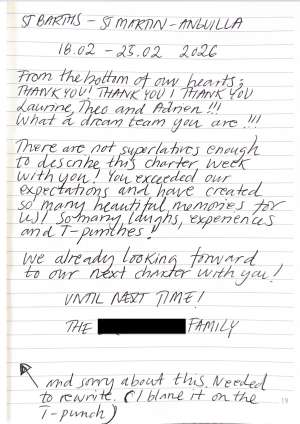 ST BARTHS - ST MARTIN - ANGUILLA
18.02 - 25.02 2026
From the bottom of our hearts;
THANK YOU! THANK YOU! THANK YOU
Laurine, Theo and Adrien !!!
What a dream team you are !!!
There are not superlatives enough
to describe this charter week
with you! You exceeded our
expectations and have created
so many beautiful memories for
us! So many laughs, experiences
and T-punches!
We already looking forward
to our next charter with you!
UNTIL NEXT TIME!
THE FAMILY
and sorry about this. Needed
to rewrite. (I blame it on the
T-punch)